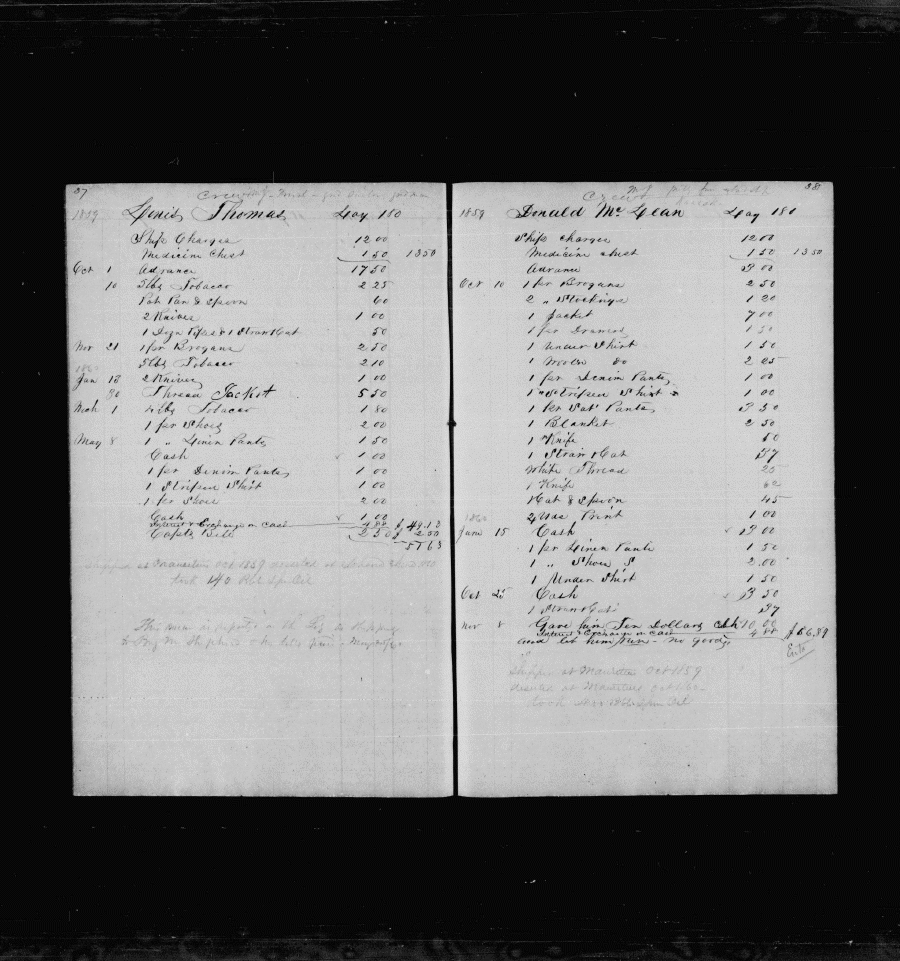 37
1859 Lewis Thomas Lay 180
Ship Charges 12 00
Medicine Chest 1 50 13 50
Oct 1 Advance 17 50
10 5 lbs Tobacco 2 25
Pot Pan & Spoon 60
2 Knives 1 00
1 Dozn Pipes & 1 Straw Hat 50
Nov 21 1 pr Brogans 2 50
5 lbs Tobacco 2 10
1860
Jan 18 2 Knives 1 00
30 Jacket 5 50
Mch 1 4 lbs Tobacco 1 80
1 pr Shoes 2 00
May 8 1 " Linen Pants 1 50
Cash 1 00
1 pr Denim Pants 1 00
1 Striped Shirt 1 00
1 pr Shoes 2 00
Cash 1 00
Interest & Exchange on Cash 4 88 $ 49.13
Capts Bill 2 50 2.50
51 63
shipped at Mauritius Oct 1859 deserted at
took 140
This man is
38
1859 Donald McLean Lay 180
Ship Charges 12 00
Medicine Chest 1 50 13 50
Advance 3 00
Oct 10 1 pr Brogans 2 50
2 " Stockings 1 20
1 Jacket 7 00
1 pr Drawers 1 50
1 Under Shirt 1 50
1 Woolen Do 2 25
1 pr Denim Pants 1 00
1 " Striped Shirt 1 00
1 pr Sat Pants 3 50
1 Blanket 2 50
1 Knife 50
1 Straw Hat 37
White Thread 25
1 Knife 62
1 Hat & Spoon 45
2 yds Print 1 00
1860
June 15 Cash 3 00
1 pr Linen Pants 1 50
1 " Shoes 2.00
1 Under Shirt 1 50
Oct 25 Cash 3 50
1 Straw Hat 37
Nov 8 Gave him Ten Dollars Cash 10.00
Interest & Exchange on Cash 4 88 $ 86.89
and let him run - no good
shipped at Mauritius Oct 1859
deserted at Mauritius Oct 1860
took